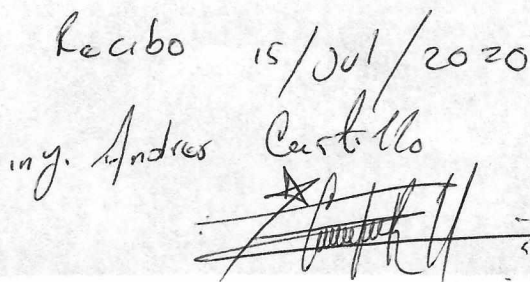 Recibo 15/Jul/2020
ing. Andres Castillo